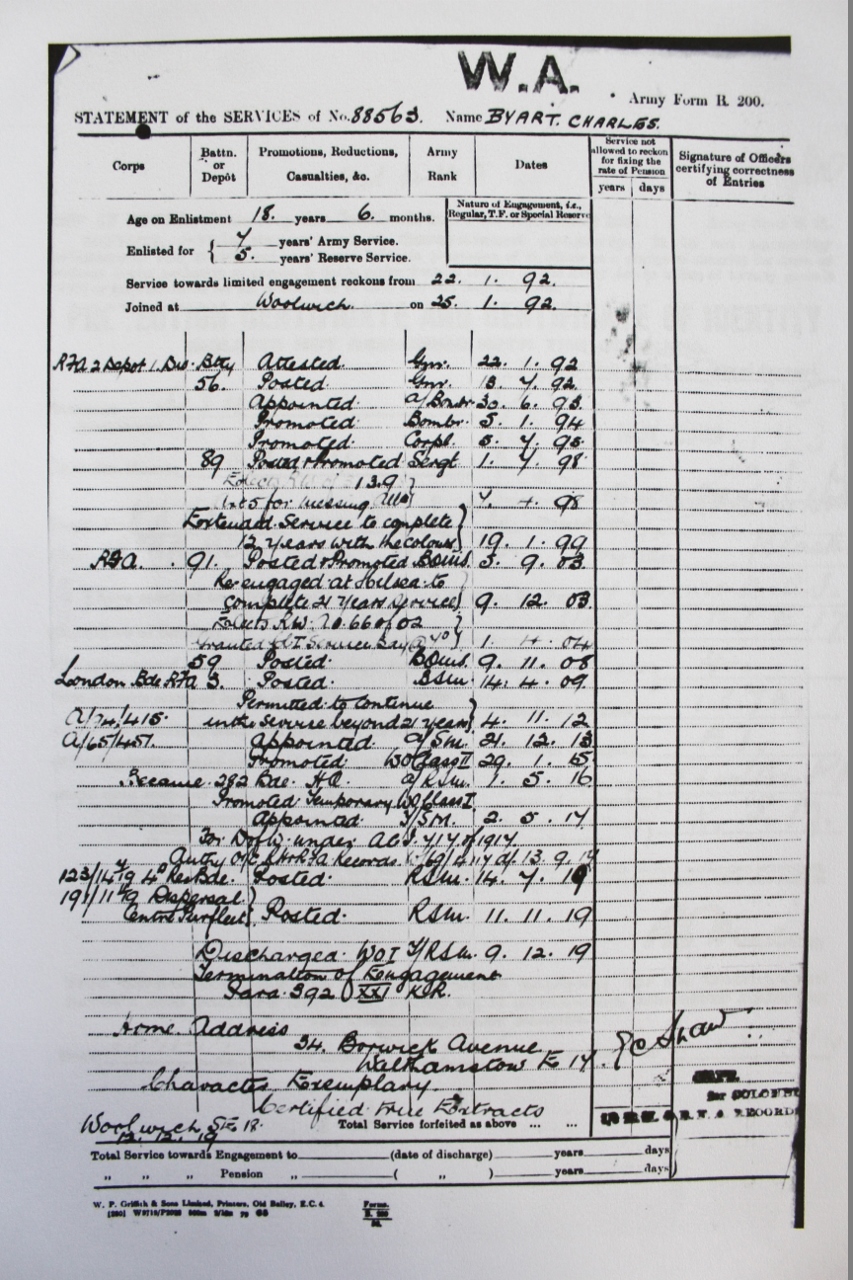 W.A.
Army Form B. 200.
STATEMENT of the SERVICES of No. 88563. Name BYART. CHARLES.
Corps Battn. or Depôt Promotions, Reductions, Casualties, &c. Army Rank Dates Service not allowed to reckon for fixing the rate of Pension years days Signature of Officers certifying correctness of Entries
Age on Enlistment 18. years 6. months.
Nature of Engagement, i.e., Regular, T.F. or Special Reserve
Enlisted for { 7 years' Army Service.
5. years' Reserve Service.
Service towards limited engagement reckons from 22. 1. 92.
Joined at Woolwich. on 25. 1. 92.
RFA 2 Depot 1. Div. Bty Attested. Gnr. 22. 1. 92
56. Posted. Gnr. 7. 92.
Appointed a/Bombr 30. 6. 93.
Promoted. Bombr. 5. 1. 94
Promoted. Corpl. 7. 95.
89 Posted & Promoted Sergt 1. 7. 98.
13.9
for messing 98
Extended Service to complete
12 years with the colours 19. 1. 99
RFA. 91. Posted & Promoted BQMS. 3. 9. 03.
Re-engaged at to
complete 21 years service 9. 12. 03.
66 of 02
Granted Service Pay 1. 4. 04
59 Posted. BQMS. 9. 11. 08
London Bde RFA 3. Posted. BSM. 14. 4. 09.
Permitted to continue
A/74/415. in the service beyond 21 years 4. 11. 12
A/65/451. Appointed a/SM. 21. 12. 13
Promoted WO Class II 29. 1. 15
Became 282 Bde. HQ a/RSM. 1. 5. 16
Promoted Temporary WO Class I
Appointed T/SM. 2. 5. 17
For Duty under ACI. of 1917.
Auty O i/c RH & RFA Records 13. 9. 17
4th Res Bde. Posted. RSM. 14. 7. 19
Dispersal
Centre Purfleet Posted. RSM. 11. 11. 19
Discharged. WO I T/RSM. 9. 12. 19
Termination of Engagement
Para. 392 XXI K.R.
Home Address
34. Borwick Avenue.
Walthamstow E 17.
E C Shaw
Character Exemplary.
CAPT.
for COLONEL
Certified true Extracts
R.F.A. RECORDS
Woolwich SE 18.
12. 12. 19
Total Service forfeited as above ... ...
Total Service towards Engagement to (date of discharge) years days
„ „ „ Pension „ ( „ ) years days
W. P. Griffith & Sons Limited, Printers, Old Bailey, E.C. 4.
Forms
B. 200